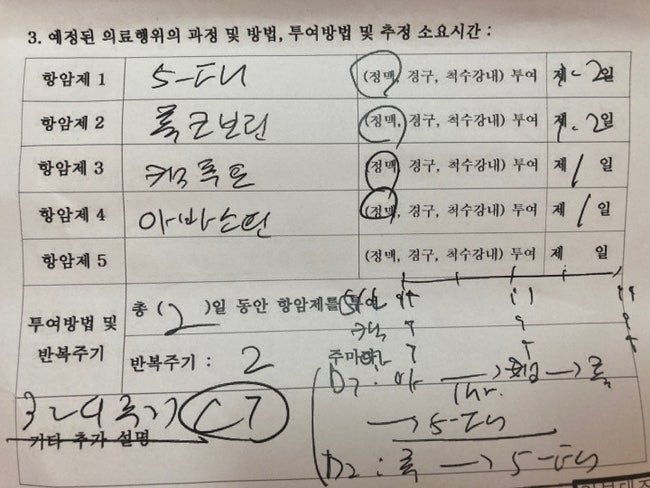 3. 예정된 의료행위의 과정 및 방법, 투여방법 및 추정 소요시간 :
항암제 1 5-FU (정맥, 경구, 척수강내) 투여 제 1-2일
항암제 2 류코보린 (정맥, 경구, 척수강내) 투여 제 1-2일
항암제 3 캠푸토 (정맥, 경구, 척수강내) 투여 제 1 일
항암제 4 아바스틴 (정맥, 경구, 척수강내) 투여 제 1 일
항암제 5 (정맥, 경구, 척수강내) 투여 제 일
투여방법 및 반복주기
총 ( 2 )일 동안 항암제를 투여
반복주기 : 2 주마다
CT
기타 추가 설명
D1 : 아 1hr. → 캠 → 류
→ 5-FU
D2 : 류 → 5-FU